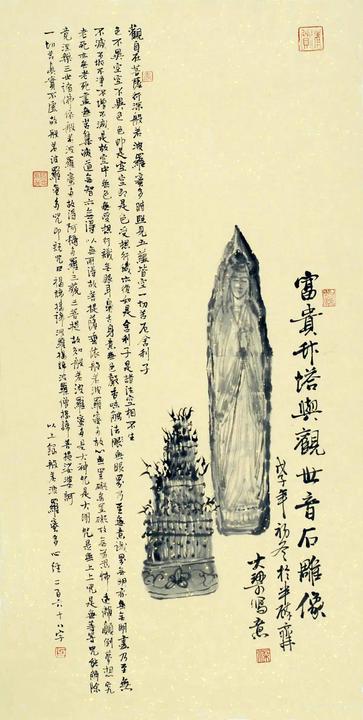 富貴竹塔與觀世音石雕像
戊子年初冬於半醉齋
寫意
觀自在菩薩行深般若波羅蜜多時照見五蘊皆空一切苦厄舍利子
色不異空空不異色色即是空空即是色受想行識亦復如是舍利子是諸法空相不生
不滅不垢不淨不增不減是故空中無色無受想行識無眼耳鼻舌身意無色聲香味觸法無眼界乃至無意識界無無明亦無無明盡乃至無
老死亦無老死盡無苦集滅道無智亦無得以無所得故菩提薩埵依般若波羅蜜多故心無罣礙無罣礙故無有恐怖遠離顛倒夢想究
竟涅槃三世諸佛依般若波羅蜜多故得阿耨多羅三藐三菩提故知般若波羅蜜多是大神咒是大明咒是無上咒是無等等咒能除
一切苦真實不虛故說般若波羅蜜多咒即說咒曰揭諦揭諦波羅揭諦波羅僧揭諦菩提娑婆訶
以上錄般若波羅蜜多心經二百六十八字